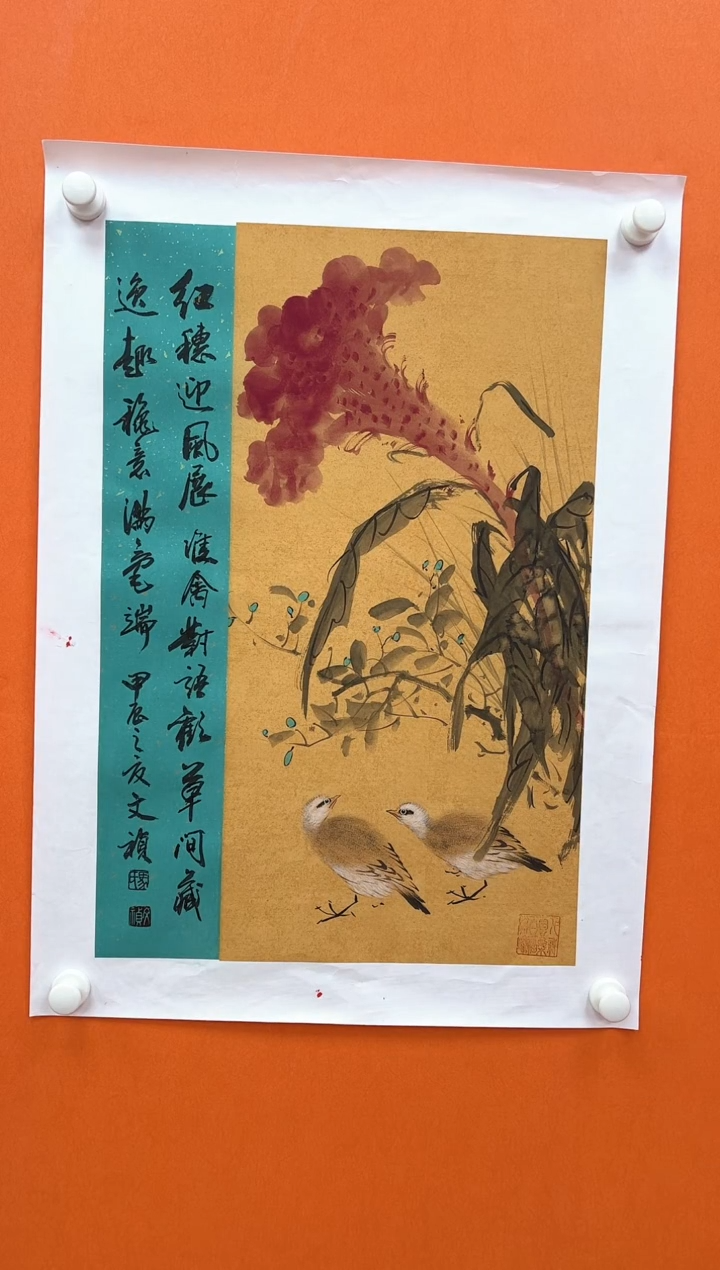 紅穗迎風展雅禽對語歡草间藏
逸趣穐意滿毫端甲辰之夜文禎